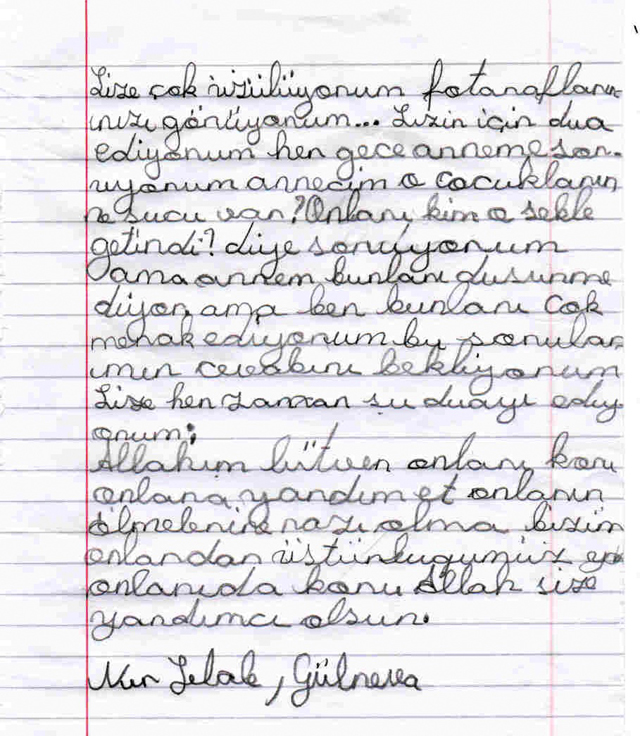 Size çok üzülüyorum fotaraflarını
ınızı görüyorum... Sizin için dua
ediyorum her gece anneme sor-
uyorum annecim o çocukların
ne sucu var? Onları kim o sekle
getirdi? diye soruyorum
ama annem bunları dusunme
diyor, ama ben bunları çok
merak ediyorum bu sorular
ımın cevabını bekliyorum
Size her zaman su duayı ediy
orum;
Allahım lütven onları koru
onlara yardım et onların
ölmelerine razı olma bizim
onlardan üstünlugumüz yo
onlarıda koru Allah size
yardımcı olsun.
Nur Şelale, Gülnesa